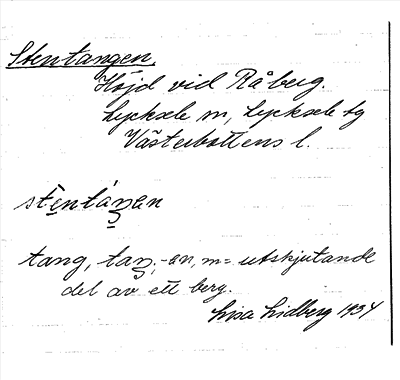 Stentangen.
Höjd vid Råberg.
Lycksele m, Lycksele tg
Västerbottens l.
tang, -en, m = utskjutande
del av ett berg.
Lisa Lidberg 1934